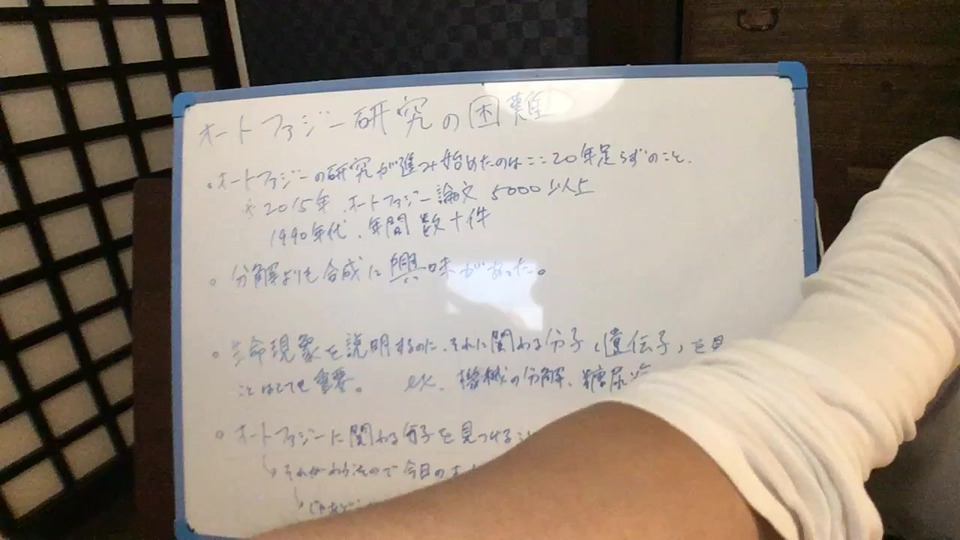 オートファジー研究の困難
・オートファジーの研究が進み始めたのはここ20年足らずのこと、
※2015年、オートファジー論文 5000以上
1990年代、年間数十件
・分解よりも合成に興味があった。
・生命現象を説明するのに、それに関わる分子(遺伝子)を見
ことはとても重要。 ex. 機械の分解、糖尿
・オートファジーに関わる分子を見つける
それがあったので今日のオ